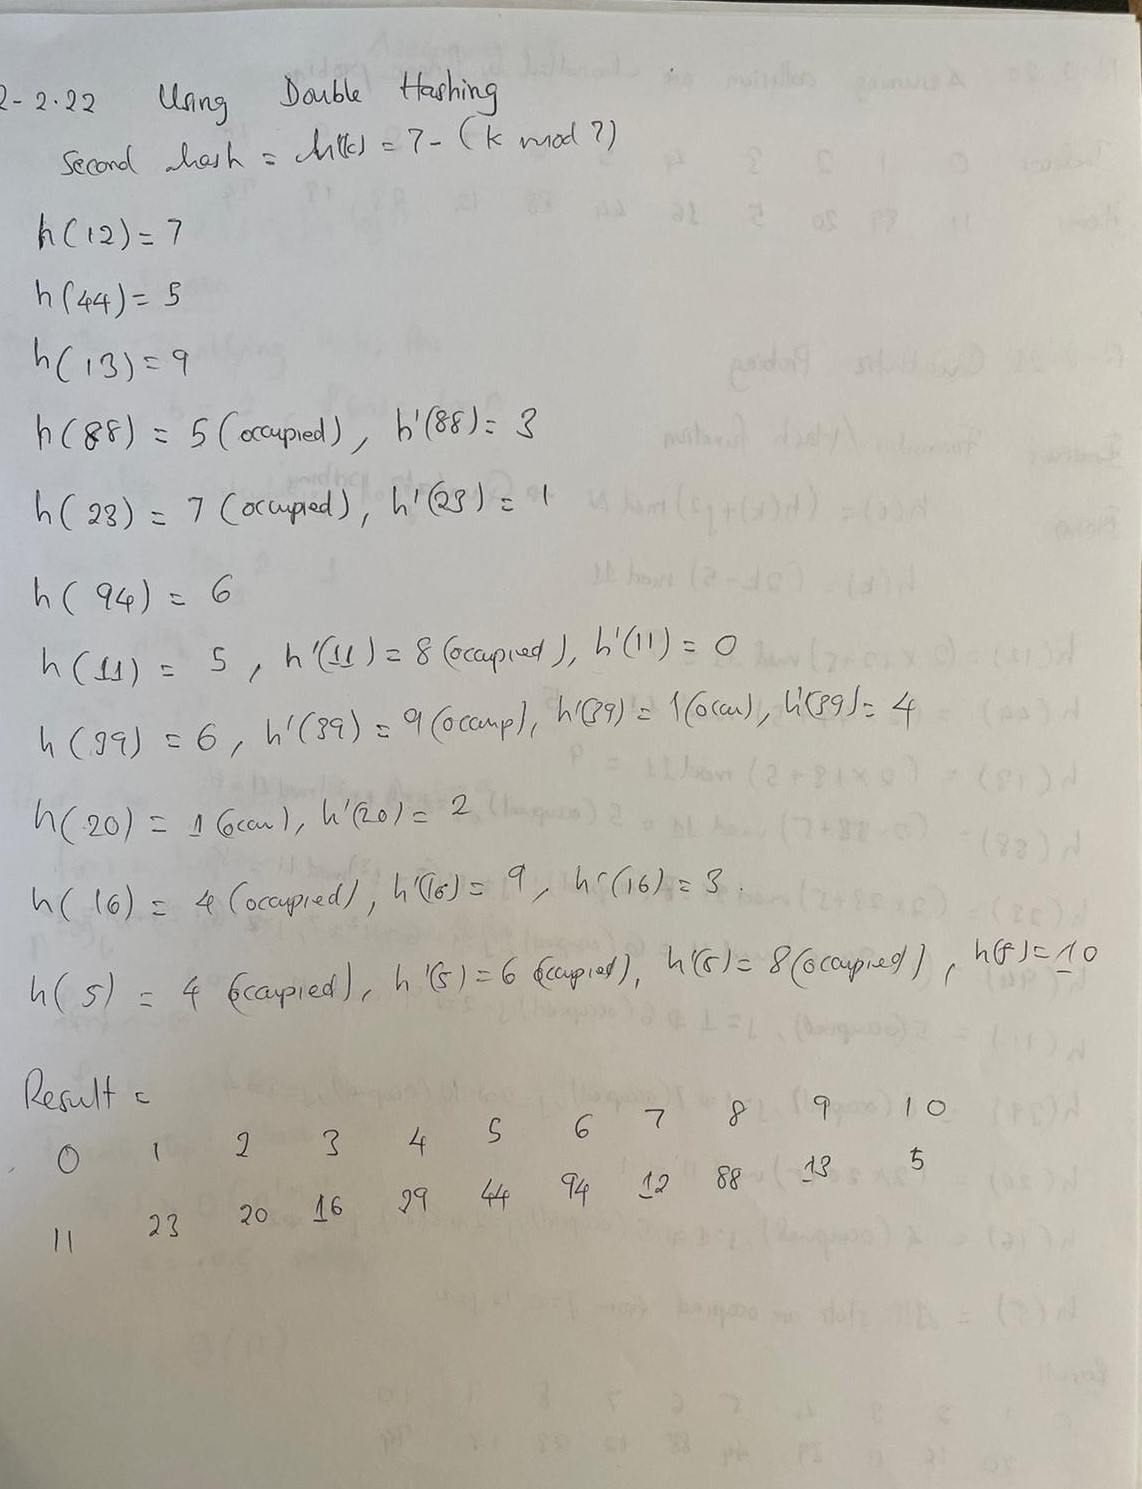 2-2.22 Using Double Hashing
Second hash = h'(k) = 7- (k mod 7)
h(12) = 7
h(44) = 5
h(13) = 9
h(88) = 5 (occupied), h'(88) = 3
h(23) = 7 (occupied), h'(23) = 1
h(94) = 6
h(11) = 5, h'(11) = 8 (occupied), h'(11) = 0
h(39) = 6, h'(39) = 9 (occup), h'(39) = 1 (occu), h'(39) = 4
h(20) = 1 (occu), h'(20) = 2
h(16) = 4 (occupied), h'(16) = 9, h'(16) = 3.
h(5) = 4 (occupied), h'(5) = 6 (occupied), h'(5) = 8 (occupied), h(5) = 10
Result =
0 1 2 3 4 5 6 7 8 9 10
11 23 20 16 29 44 94 12 88 13 5